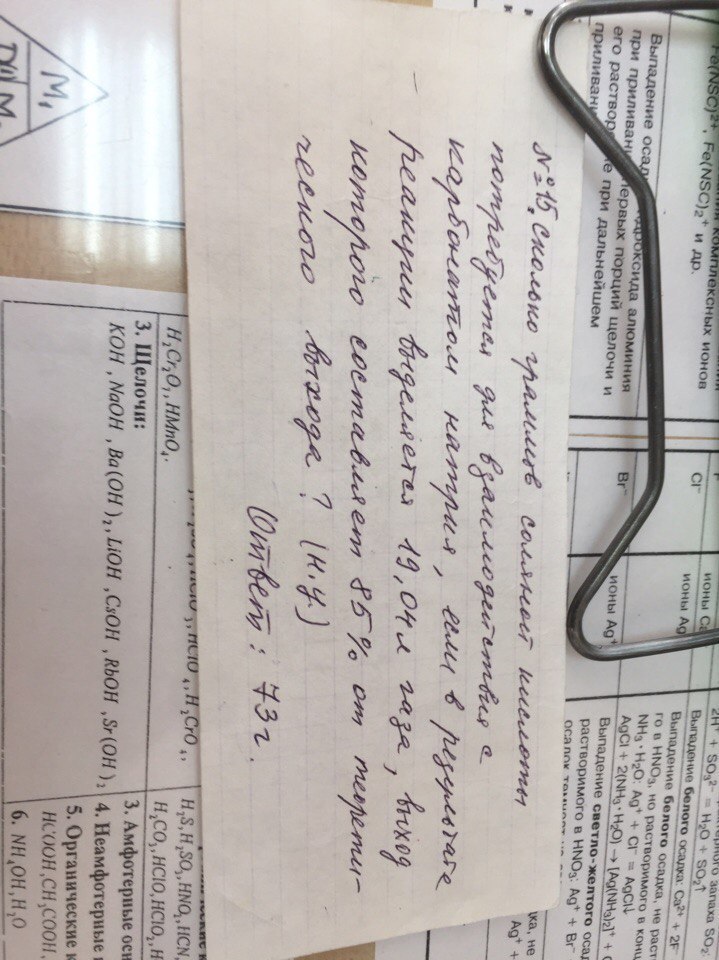 №15. Сколько граммов соляной кислоты
потребуется для взаимодействия с
карбонатом натрия, если в результате
реакции выделяется 19,04л газа, выход
которого составляет 85% от теорети-
ческого выхода? (н.у.)
Ответ: 73г.
комплексных ионов
Fe(NSC)²⁺, Fe(NSC)₂⁺ и др.
Выпадение осад
дроксида алюминия
при приливан
первых порций щелочи и
его раствор
ие при дальнейшем
приливан
Cl⁻
ионы Ag
Br⁻
ионы Ag⁺
2H⁺ + SO₃²⁻ = H₂O + SO₂↑
Выпадение белого осадка: Ca²⁺ + 2F⁻
Выпадение белого осадка, не раст
го в HNO₃, но растворимого в конц
NH₃·H₂O: Ag⁺ + Cl⁻ = AgCl↓
AgCl + 2(NH₃·H₂O) → [Ag(NH₃)₂]⁺ + C
Выпадение светло-желтого осад
растворимого в HNO₃: Ag⁺ + Br⁻
M₁
H₂Cr₂O₇, HMnO₄.
3. Щелочи:
KOH, NaOH, Ba(OH)₂, LiOH, CsOH, RbOH, Sr(OH)₂
H₂S, H₂SO₃, HNO₂, HCN,
H₂CO₃, HClO, HClO₂, H
3. Амфотерные осн
4. Неамфотерные
5. Органические к
HCOOH, CH₃COOH,
6. NH₄OH, H₂O